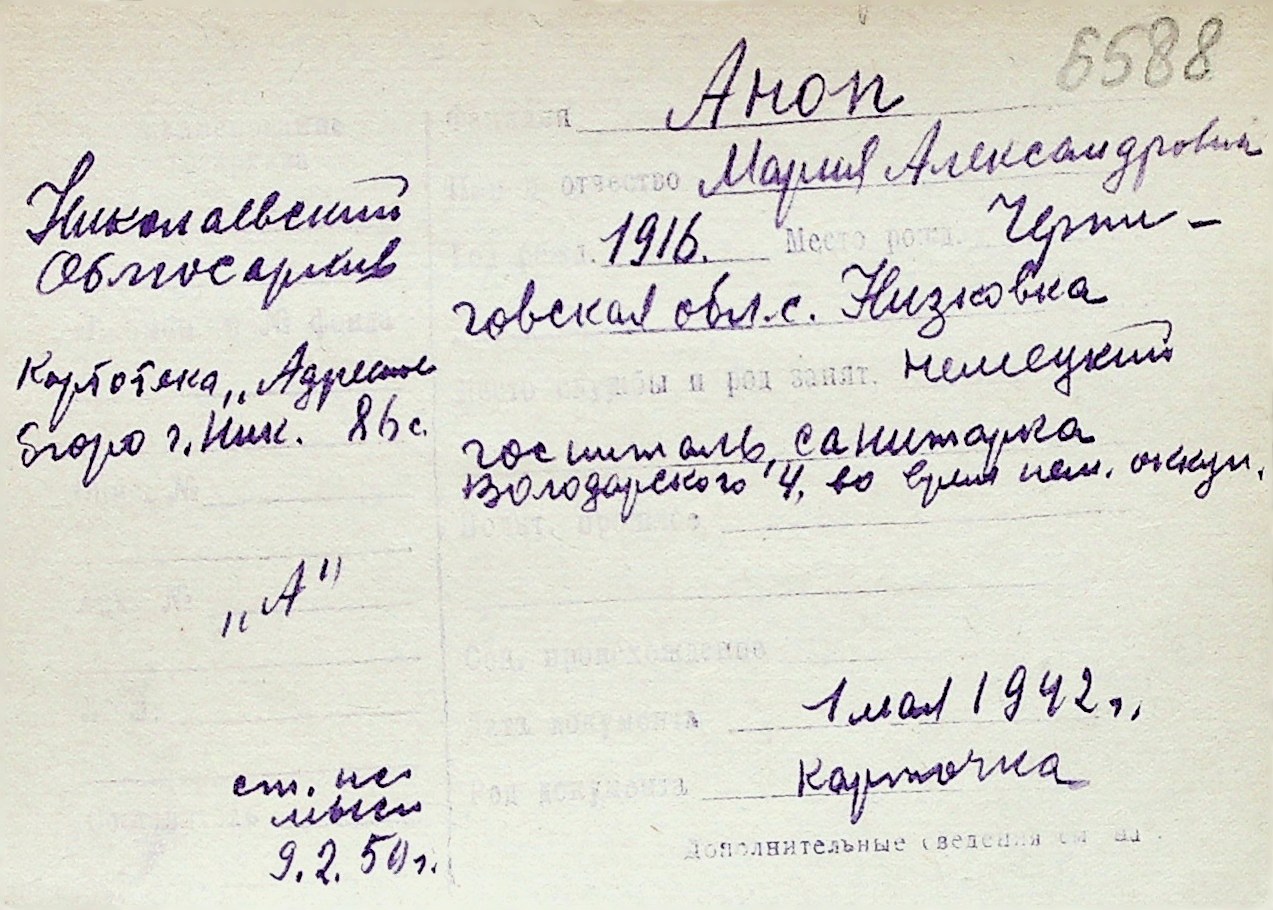 6588
Фамилия Аноп
отчество Мария Александровна
Год рожд. 1916. Место рожд. Черни-
говская обл. с. Низковка
Место службы и род занят. немецкий
госпиталь, санитарка
Володарского 4, во время нем. оккуп.
Полит. прошлое
Соц. происхождение
Дата документа 1 мая 1942 г.
Род документа карточка
Дополнительные сведения см на
Николаевский
Облгосархив
№ фонда
Картотека „Адресное
бюро г. Ник. 86с.
№
„А"
№
ст.
9.2.50г.